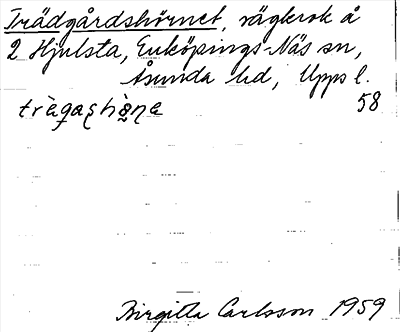 Trädgårdshörnet, vägkrok å
2 Hjulsta, Enköpings-Näs sn,
Åsunda hd, Upps l.
58
Birgitta Carlsson 1959